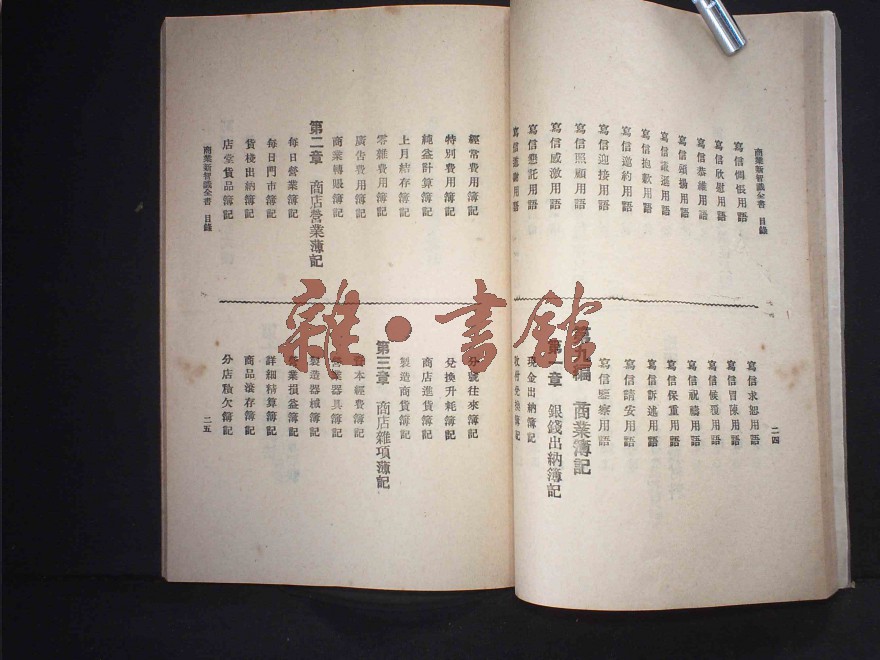 商業新智識全書 目錄
寫信惆悵用語
寫信欣慰用語
寫信恭維用語
寫信頌揚用語
寫信謙遜用語
寫信抱歉用語
寫信邀約用語
寫信迎接用語
寫信照顧用語
寫信感激用語
寫信懇託用語
寫信求恕用語
寫信冒陳用語
寫信候覆用語
寫信祝禱用語
寫信保重用語
寫信訴逃用語
寫信請安用語
寫信鑒察用語
第九編 商業簿記
第一章 銀錢出納簿記
現金出納簿記
二四
經常費用簿記
特別費用簿記
純益計算簿記
上月結存簿記
零雜費用簿記
廣告費用簿記
商業轉賬簿記
第二章 商店營業簿記
每日營業簿記
每日門市簿記
貨棧出納簿記
店堂貨品簿記
分號往來簿記
兌換升耗簿記
商店進貨簿記
製造商貨簿記
第三章 商店雜項簿記
資本經費簿記
營業器具簿記
製造器械簿記
營業損益簿記
詳細精算簿記
商品滾存簿記
分店積欠簿記
商業新智識全書 目錄
二五
雜·書館